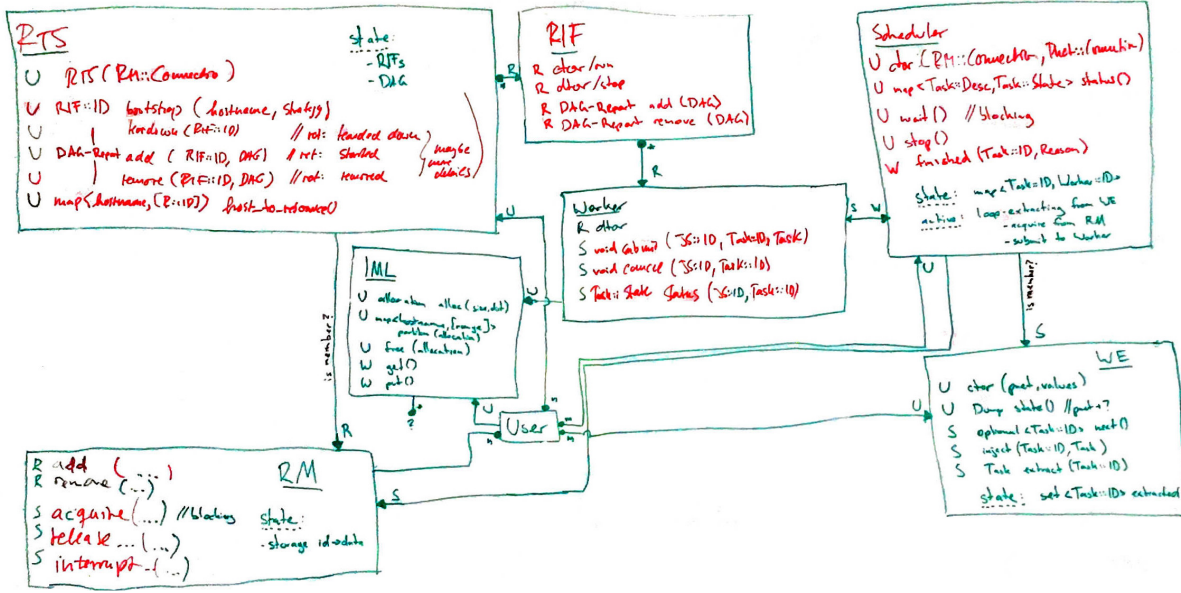 RTS
state:
- RIFs
- DAG
U RTS (RM::Connection)
U RIF::ID bootstrap (hostname, strategy)
U teardown (RIF::ID) // ret: teared down
U DAG-Report add (RIF::ID, DAG) // ret: started
U remove (RIF::ID, DAG) // ret:
maybe
more
details
U map<hostname, [R::ID]> host_to_resource()
R
RIF
R ctor/run
R dtor/stop
R DAG-Report add (DAG)
R DAG-Report remove (DAG)
R
Scheduler
U ctor (RM::Connection, Pnet::Connection)
U map<Task::Desc, Task::State> status()
U wait() // blocking
U stop()
W finished (Task::ID, Reason)
state: map<Task::ID, Worker::ID>
active: loop-extracting from WE
- acquire from RM
- submit to Worker
Worker
R dtor
S void submit (JS::ID, Task::ID, Task)
S void cancel (JS::ID, Task::ID)
S Task::State status (JS::ID, Task::ID)
S W
U
IML
U allocation alloc (size, dist)
U map<hostname, [range]>
partition (allocation)
U free (allocation)
W get()
W put()
U
*
?
is member?
R
U
User
n
n
n
n
U
is member?
S
U
WE
U ctor (pnet, values)
U Dump state() // pnet+?
S optional<Task::ID> next()
S inject (Task::ID, Task)
S Task extract (Task::ID)
state: set<Task::ID> extracted
RM
R add (....)
R remove (...)
S acquire (...) // blocking
S release ... (...)
S interrupt - (...)
state:
- storage id→data
S